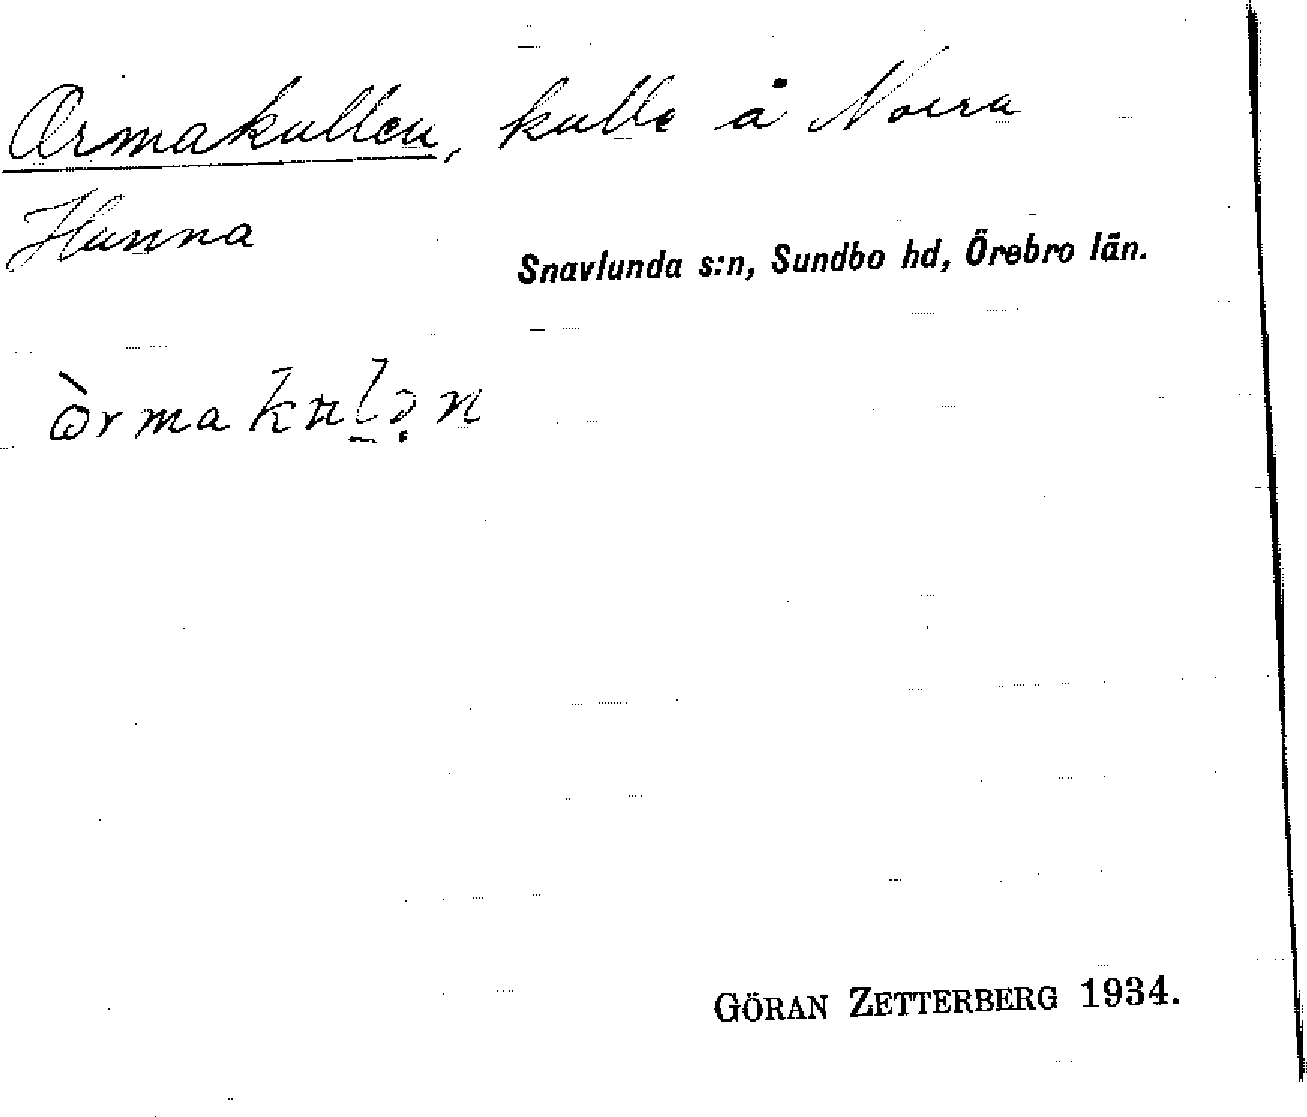 Ormakullen, kulle å Norra
Hunna
Snavlunda s:n, Sundbo hd, Örebro län.
GÖRAN ZETTERBERG 1934.